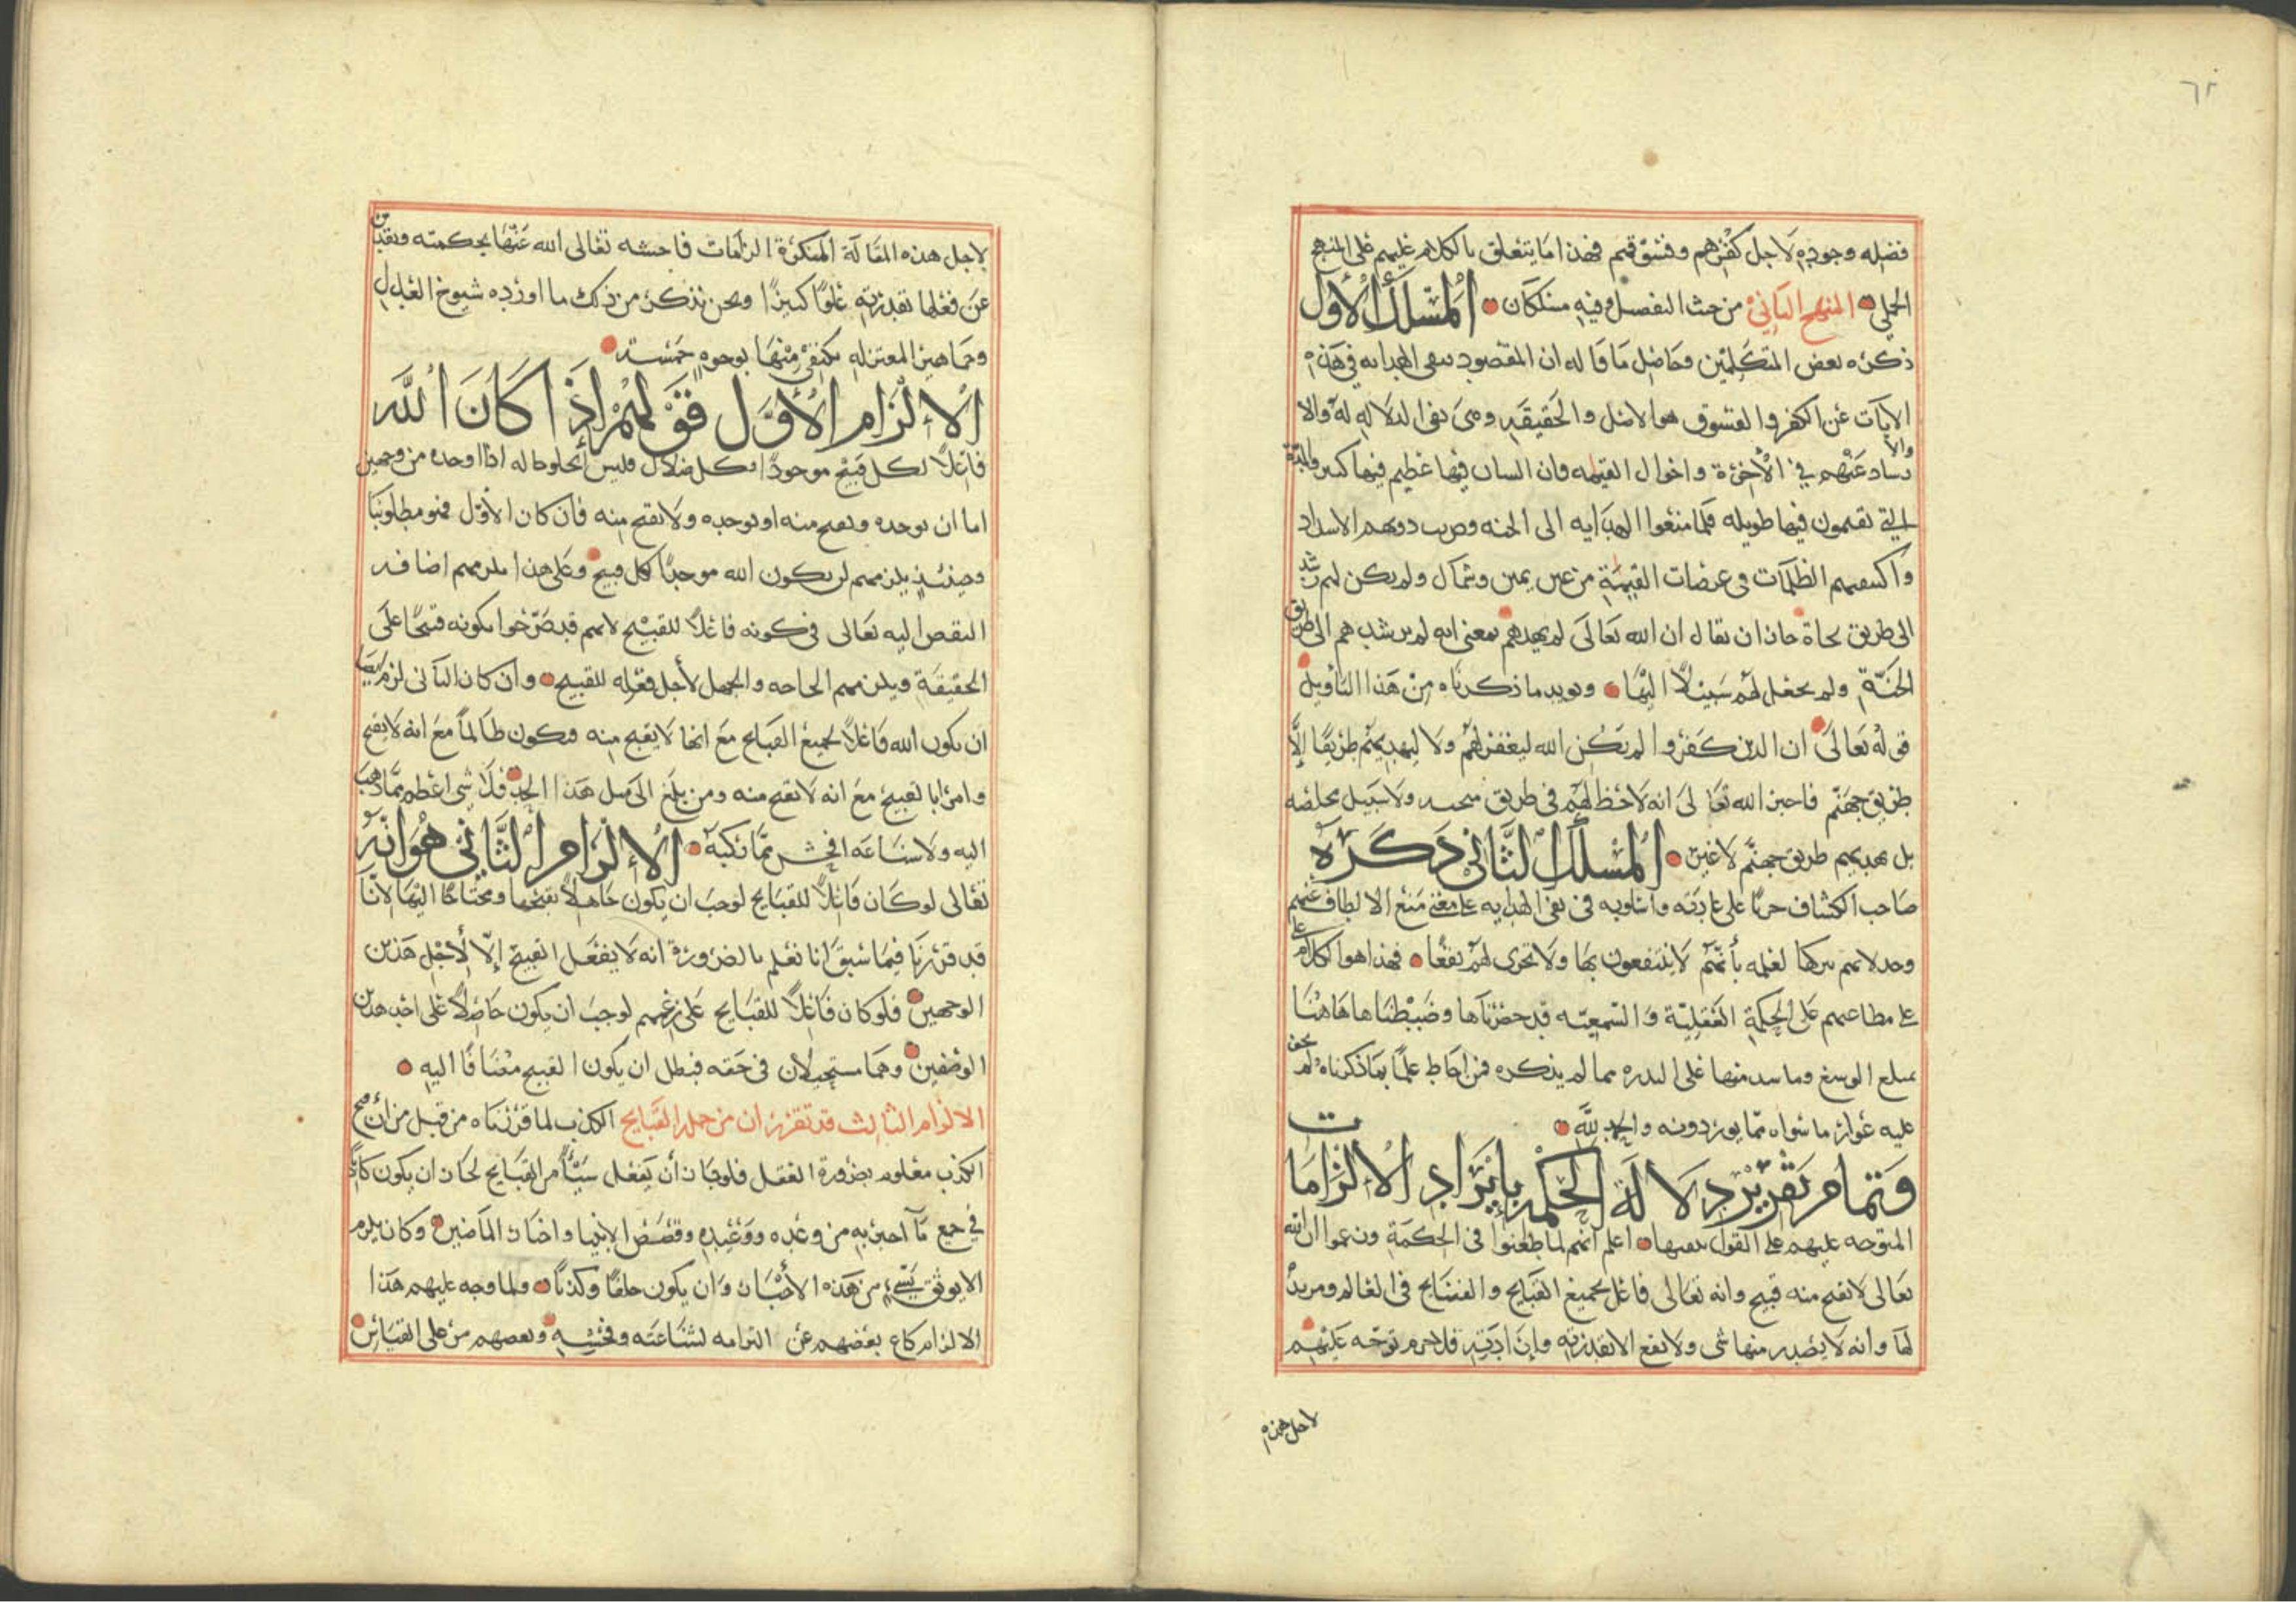 ٦٢
فضله وجوده لاجل كفرهم وفسوقهم فهذا ما يتعلق بالكلام عليهم على المنهج
الجملي المنهج الثاني من حيث التفصيل وفيه مسلكان المسلك الأول
ذكره بعض المتكلمين وحاصل ما قاله ان المقصود بنفى الهدايه في هذه
الآيات عن الكفر والفسوق هو الاصل والحقيقه وهى نفى الدلاله له والا
والا
رساد عنهم في الأخرة واحوال القيمه فان السان فيها عظيم فيها كبير والمدة
التي يقيمون فيها طويله فلما منعوا الهدايه الى الجنه وضرب دونهم الاسداد
واكتنفهم الظلمات في عرصات القيمة من عين يمين وشمال ولم يكن لهم رشد
الى طريق نجاة جاز ان يقال ان الله تعالى لم يهدهم بمعنى انه لم يرشدهم الى طريق
الجنة ولم يجعل لهم سبيلا اليها ويويد ما ذكرناه من هذا التأويل
قوله تعالى ان الذين كفروا لم يكن الله ليغفر لهم ولا ليهديهم طريقا إلا
طريق جهنم فاخبر الله تعالى انه لا حظ لهم في طريق ولا سبيل مخلصه
بل يهديهم طريق جهنم لا غير المسلك الثاني ذكره
صاحب الكشاف جريا على عادته واسلوبه في نفى الهدايه على معنى منع الالطاف عنهم
وخدلانهم بتركها لعلمه بأنهم لا ينتفعون بها ولا تجرى لهم نفعا فهذا هو الكلام
على
على مطاعنهم على الحكمة العقلية والسمعيه قد حصرناها وضبطناها هاهنا
بمبلغ الوسع وما سد منها على الندره مما لم يذكره فمن احاط علما بما ذكرناه لم يخف
عليه عوار ما سواه مما يوردونه والحمد لله
وتمام تقرير دلالة الحكمه بإيراد الالزامات
المتوجه عليهم على القول بنفيها اعلم انهم لما طعنوا في الحكمة وزعموا ان الله
تعالى لا يقبح منه قبيح وانه تعالى فاعل لجميع القبايح والفضايح في العالم ومريد
لها وأنه لا يصدر منها شى ولا يقع الا بقدرته وإرادته فلا جرم توجه عليهم
لاجل هذه
لاجل هذه المقالة المنكرة الزامات فاحشه تعالى الله عنها بحكمته وتقدس
عن فعلها بقدرته علوا كبيرا ونحن نذكر من ذلك ما اورده شيوخ العدل
وجماهير المعتزله نكتفى منها بوجوه خمسة
الالزام الأول قولهم إذا كان الله
فاعلا لكل قبيح موجودا وكل ضلال فليس يخلو حاله اذا اوجده من وجهين
اما ان يوجده ويقبح منه او يوجده ولا يقبح منه فان كان الأول فهو مطلوبنا
وحينئذ يلزمهم ان يكون الله موجدا كل قبيح وعلى هذا يلزمهم اضافه
النقص اليه تعالى في كونه فاعلا للقبيح لانهم قد صرحوا بكونه قبيحا على
الحقيقة ويلزمهم الحاجه والجهل لأجل فعله للقبيح وان كان الثاني لزم ايضا
ان يكون الله فاعلا لجميع القبايح مع انها لا يقبح منه ويكون ظالما مع انه لا يقبح
وامرا بالقبيح مع انه لا يقبح منه ومن بلغ الى مثل هذا الحد فلا شى اعظم مما ذهب
اليه ولا شناعه افحش مما نكبه الالزام الثاني هو انه
تعالى لو كان فاعلا للقبايح لوجب ان يكون جاهلا بقبحها ومحتاجا اليها لانا
قد قررنا فيما سبق انا نعلم بالضرورة انه لا يفعل القبيح إلا لأجل هذين
الوجهين فلو كان فاعلا للقبايح على زعمهم لوجب ان يكون حاصلا على احد هذين
الوصفين وهما مستحيلان في حقه فبطل ان يكون القبيح مضافا اليه
الالزام الثالث قد تقرر ان من جملة القبايح الكذب لما قررناه من قبل من أن قبح
الكذب معلوم بضرورة العقل فلو جاز أن يفعل شيأ من القبايح لجاز ان يكون كاذبا
في جميع ما أخبر به من وعده ووعيده وقصص الانبيا واخبار الماضين وكان يلزم
الا يوثق بشيء من هذه الأخبار وان يكون خلفا وكذبا ولما وجه عليهم هذا
الالزام كاع بعضهم عن التزامه لشناعته وفحشه وبعضهم من على القياس